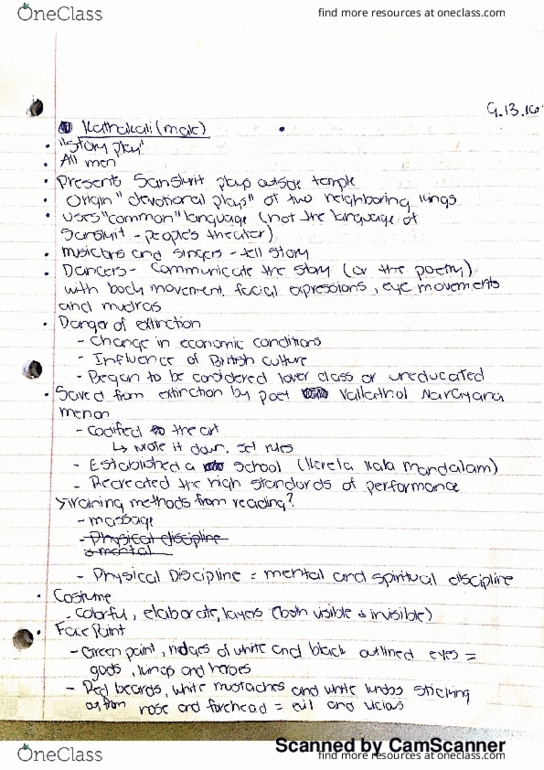 OneClass
find more resources at oneclass.com
9.13.16
Kathakali (male)
"Story play"
All men
Presents Sanskrit plays outside temple
Origin "devotional plays" of two neighboring kings
Uses "common" language (not the language of
Sanskrit - people's theater)
musicians and singers - tell story
Dancers - communicate the story (or the poetry)
with body movement, facial expressions, eye movements
and mudras
Danger of extinction
- Change in economic conditions
- Influence of British culture
- Began to be considered lower class or uneducated
Saved from extinction by poet Vallathol Narayana
menon
- Codified the art
↳ wrote it down, set rules
- Established a School (Kerela Kala Mandalam)
- Recreated the high standards of performance
Training methods from reading?
- massage
- Physical discipline
& mental
- Physical Discipline = mental and spiritual discipline
Costume
- Colorful, elaborate, layers (both visible & invisible)
Face Paint
- Green paint, ridges of white and black outlined eyes =
gods, kings and heroes
- Red beards, white mustaches and white knobs sticking
nose and forehead = evil and vicious
Scanned by CamScanner
OneClass
find more resources at oneclass.com